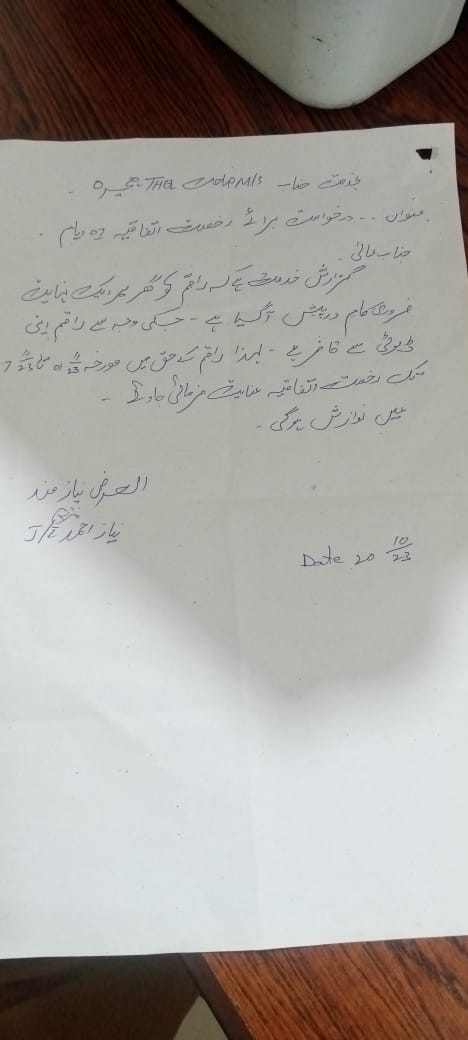 بخدمت جناب M/S صاحب THQ ہجیرہ۔
عنوان۔۔ درخواست برائے رخصت اتفاقیہ یوم ایام۔
جناب عالی۔
گزارش خدمت ہے کہ راقم کو گھر پر ایک نہایت
ضروری کام درپیش آ گیا ہے۔ جسکی وجہ سے راقم اپنی
ڈیوٹی سے قاصر ہے۔ لہذا راقم کے حق میں مورخہ 01 11/23 تا 7 11/23
تک رخصت اتفاقیہ عنایت فرمائی جاوے۔
عین نوازش ہوگی۔
العرض نیاز مند
نیاز احمد J/T
Date 20 10/23